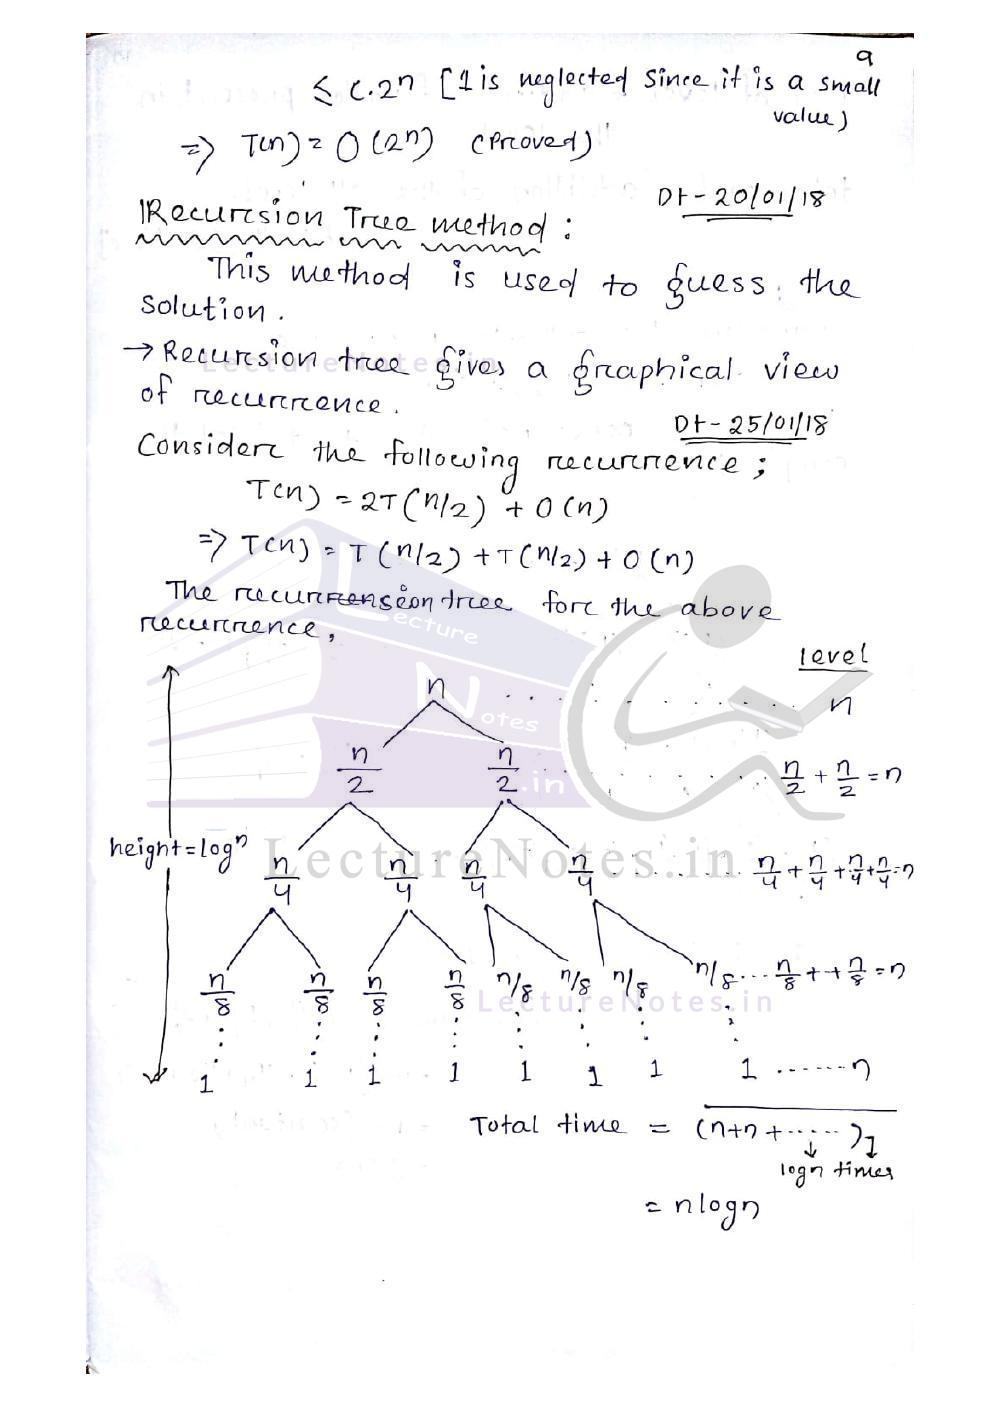 9
≤ c.2ⁿ [1 is neglected since it is a small
value)
=> T(n) = O(2ⁿ) (Proved)
Dt - 20/01/18
Recursion Tree method :
This method is used to guess the
solution.
→ Recursion tree gives a graphical view
of recurrence.
Dt - 25/01/18
Consider the following recurrence ;
T(n) = 2T(n/2) + O(n)
=> T(n) = T(n/2) + T(n/2) + O(n)
The recurrension tree for the above
recurrence,
level
n . . . . . . . . n
n/2 n/2 . . . . . . n/2 + n/2 = n
height = logⁿ
n/4 n/4 n/4 n/4 . . . . . . n/4 + n/4 + n/4 + n/4 = n
n/8 n/8 n/8 n/8 n/8 n/8 n/8 n/8 ... n/8 + + n/8 = n
1 1 1 1 1 1 1 1 ....... n
Total time = (n+n+......)
logn times
= nlogn
Lecture
Notes
.in
LectureNotes.in
LectureNotes.in
LectureNotes.in